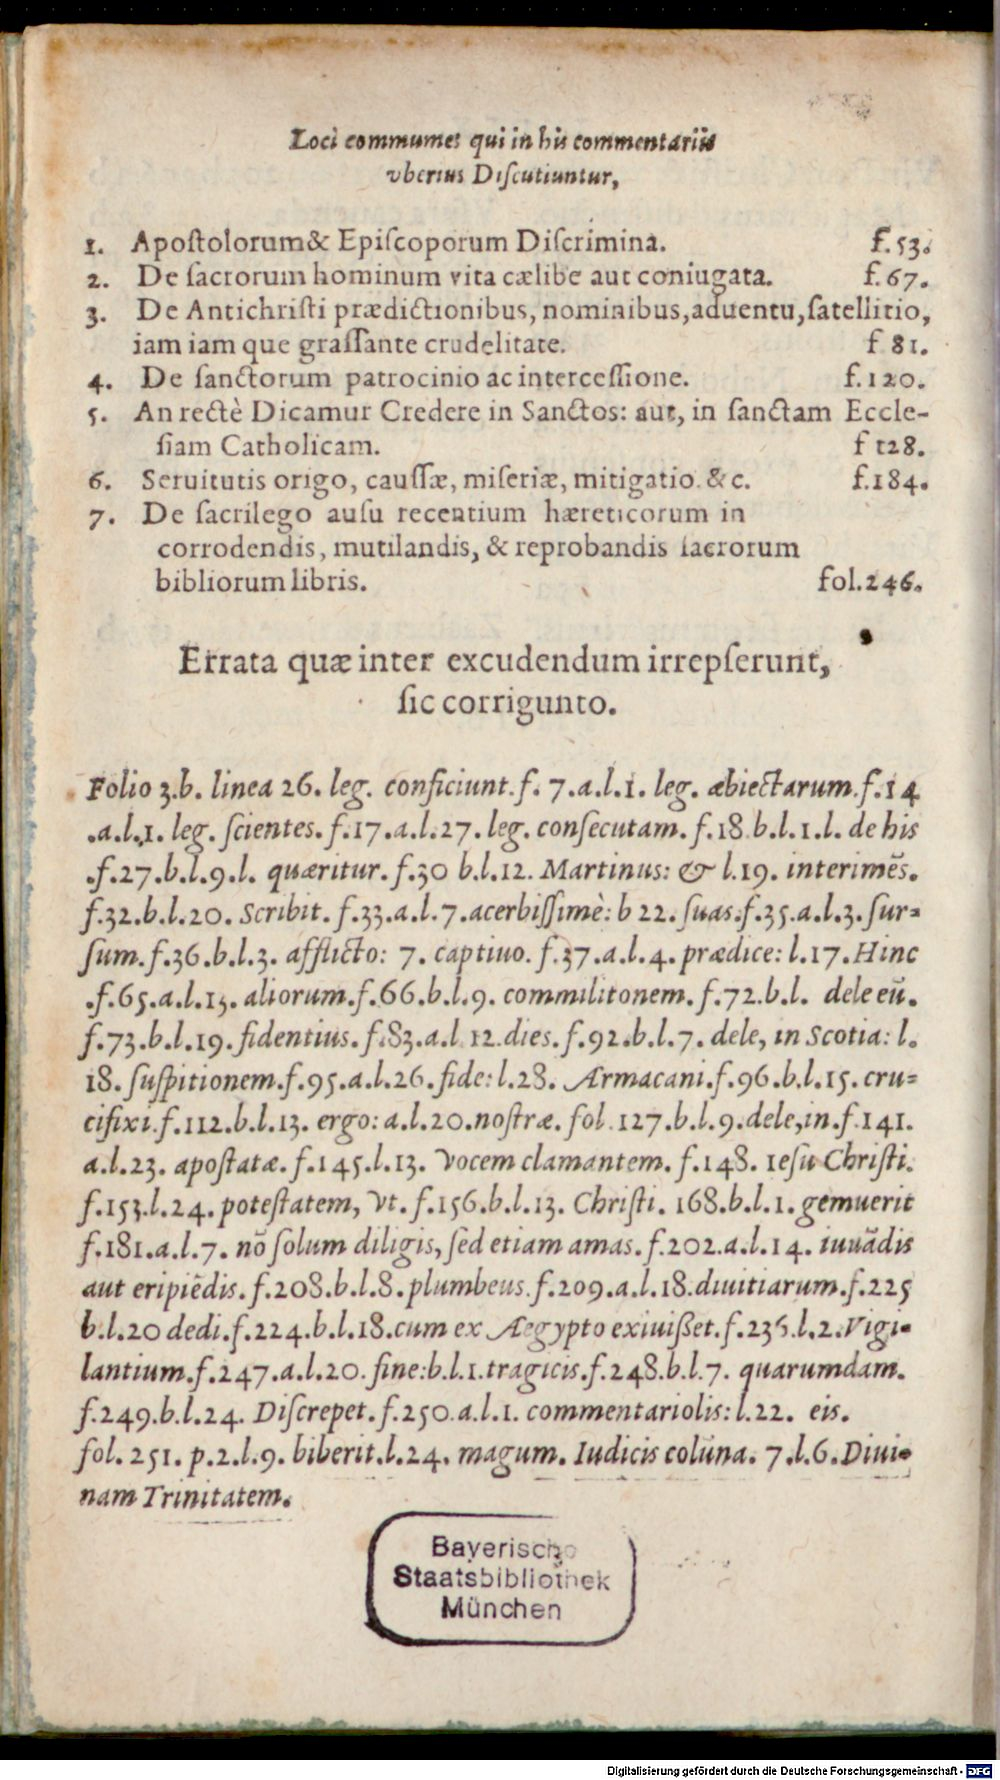 Loci communes qui in his commentariis
vberius Discutiuntur,
1. Apostolorum& Episcoporum Discrimina. f.53.
2. De sacrorum hominum vita cælibe aut coniugata. f.67.
3. De Antichristi prædictionibus, nominibus, aduentu, satellitio,
iam iam que grassante crudelitate. f 81.
4. De sanctorum patrocinio ac intercessione. f.120.
5. An rectè Dicamur Credere in Sanctos: aut, in sanctam Eccle-
siam Catholicam. f 128.
6. Seruitutis origo, caussæ, miseriæ, mitigatio. &c. f.184.
7. De sacrilego ausu recentium hæreticorum in
corrodendis, mutilandis, & reprobandis sacrorum
bibliorum libris. fol.246.
Errata quæ inter excudendum irrepserunt,
sic corrigunto.
Folio 3.b. linea 26. leg. conficiunt. f. 7.a.l.1. leg. æbiectarum. f.14
.a.l.1. leg. scientes. f.17.a.l.27. leg. consecutam. f.18.b.l.1.l. de his
.f.27.b.l.9.l. quæritur. f.30 b.l.12. Martinus: & l.19. interimẽs.
f.32.b.l.20. Scribit. f.33.a.l.7. acerbissimè: b 22. suas. f.35.a.l.3. sur-
sum. f.36.b.l.3. afflicto: 7. captiuo. f.37.a.l.4. prædice: l.17. Hinc
.f.65.a.l.13. aliorum. f.66.b.l.9. commilitonem. f.72.b.l. dele eũ.
f.73.b.l.19. fidentius. f.83.a.l 12. dies. f.92.b.l.7. dele, in Scotia: l.
18. suspitionem. f.95.a.l.26. fide: l.28. Ærmacani. f.96.b.l.15. cru-
cifixi. f.112.b.l.13. ergo: a.l.20. nostræ. fol. 127.b.l.9. dele, in. f.141.
a.l.23. apostatæ. f.145.l.13. Vocem clamantem. f.148. Iesu Christi.
f.153.l.24. potestatem, Vt. f.156.b.l.13. Christi. 168.b.l.1. gemuerit
f.181.a.l.7. nõ solum diligis, sed etiam amas. f.202.a.l.14. iuuãdis
aut eripiẽdis. f.208.b.l.8. plumbeus. f.209.a.l.18. diuitiarum. f.225
b.l.20 dedi. f.224.b.l.18. cum ex Ægypto exiuisset. f.236.l.2. Vigi-
lantium. f.247.a.l.20. fine: b.l.1. tragicis. f.248.b.l.7. quarumdam.
f.249.b.l.24. Discrepet. f.250.a.l.1. commentariolis: l.22. eis.
fol. 251. p.2.l.9. biberit. l.24. magum. Iudicis colũna. 7.l.6. Diui-
nam Trinitatem.
Bayerische
Staatsbibliothek
München
Digitalisierung gefördert durch die Deutsche Forschungsgemeinschaft - DFG